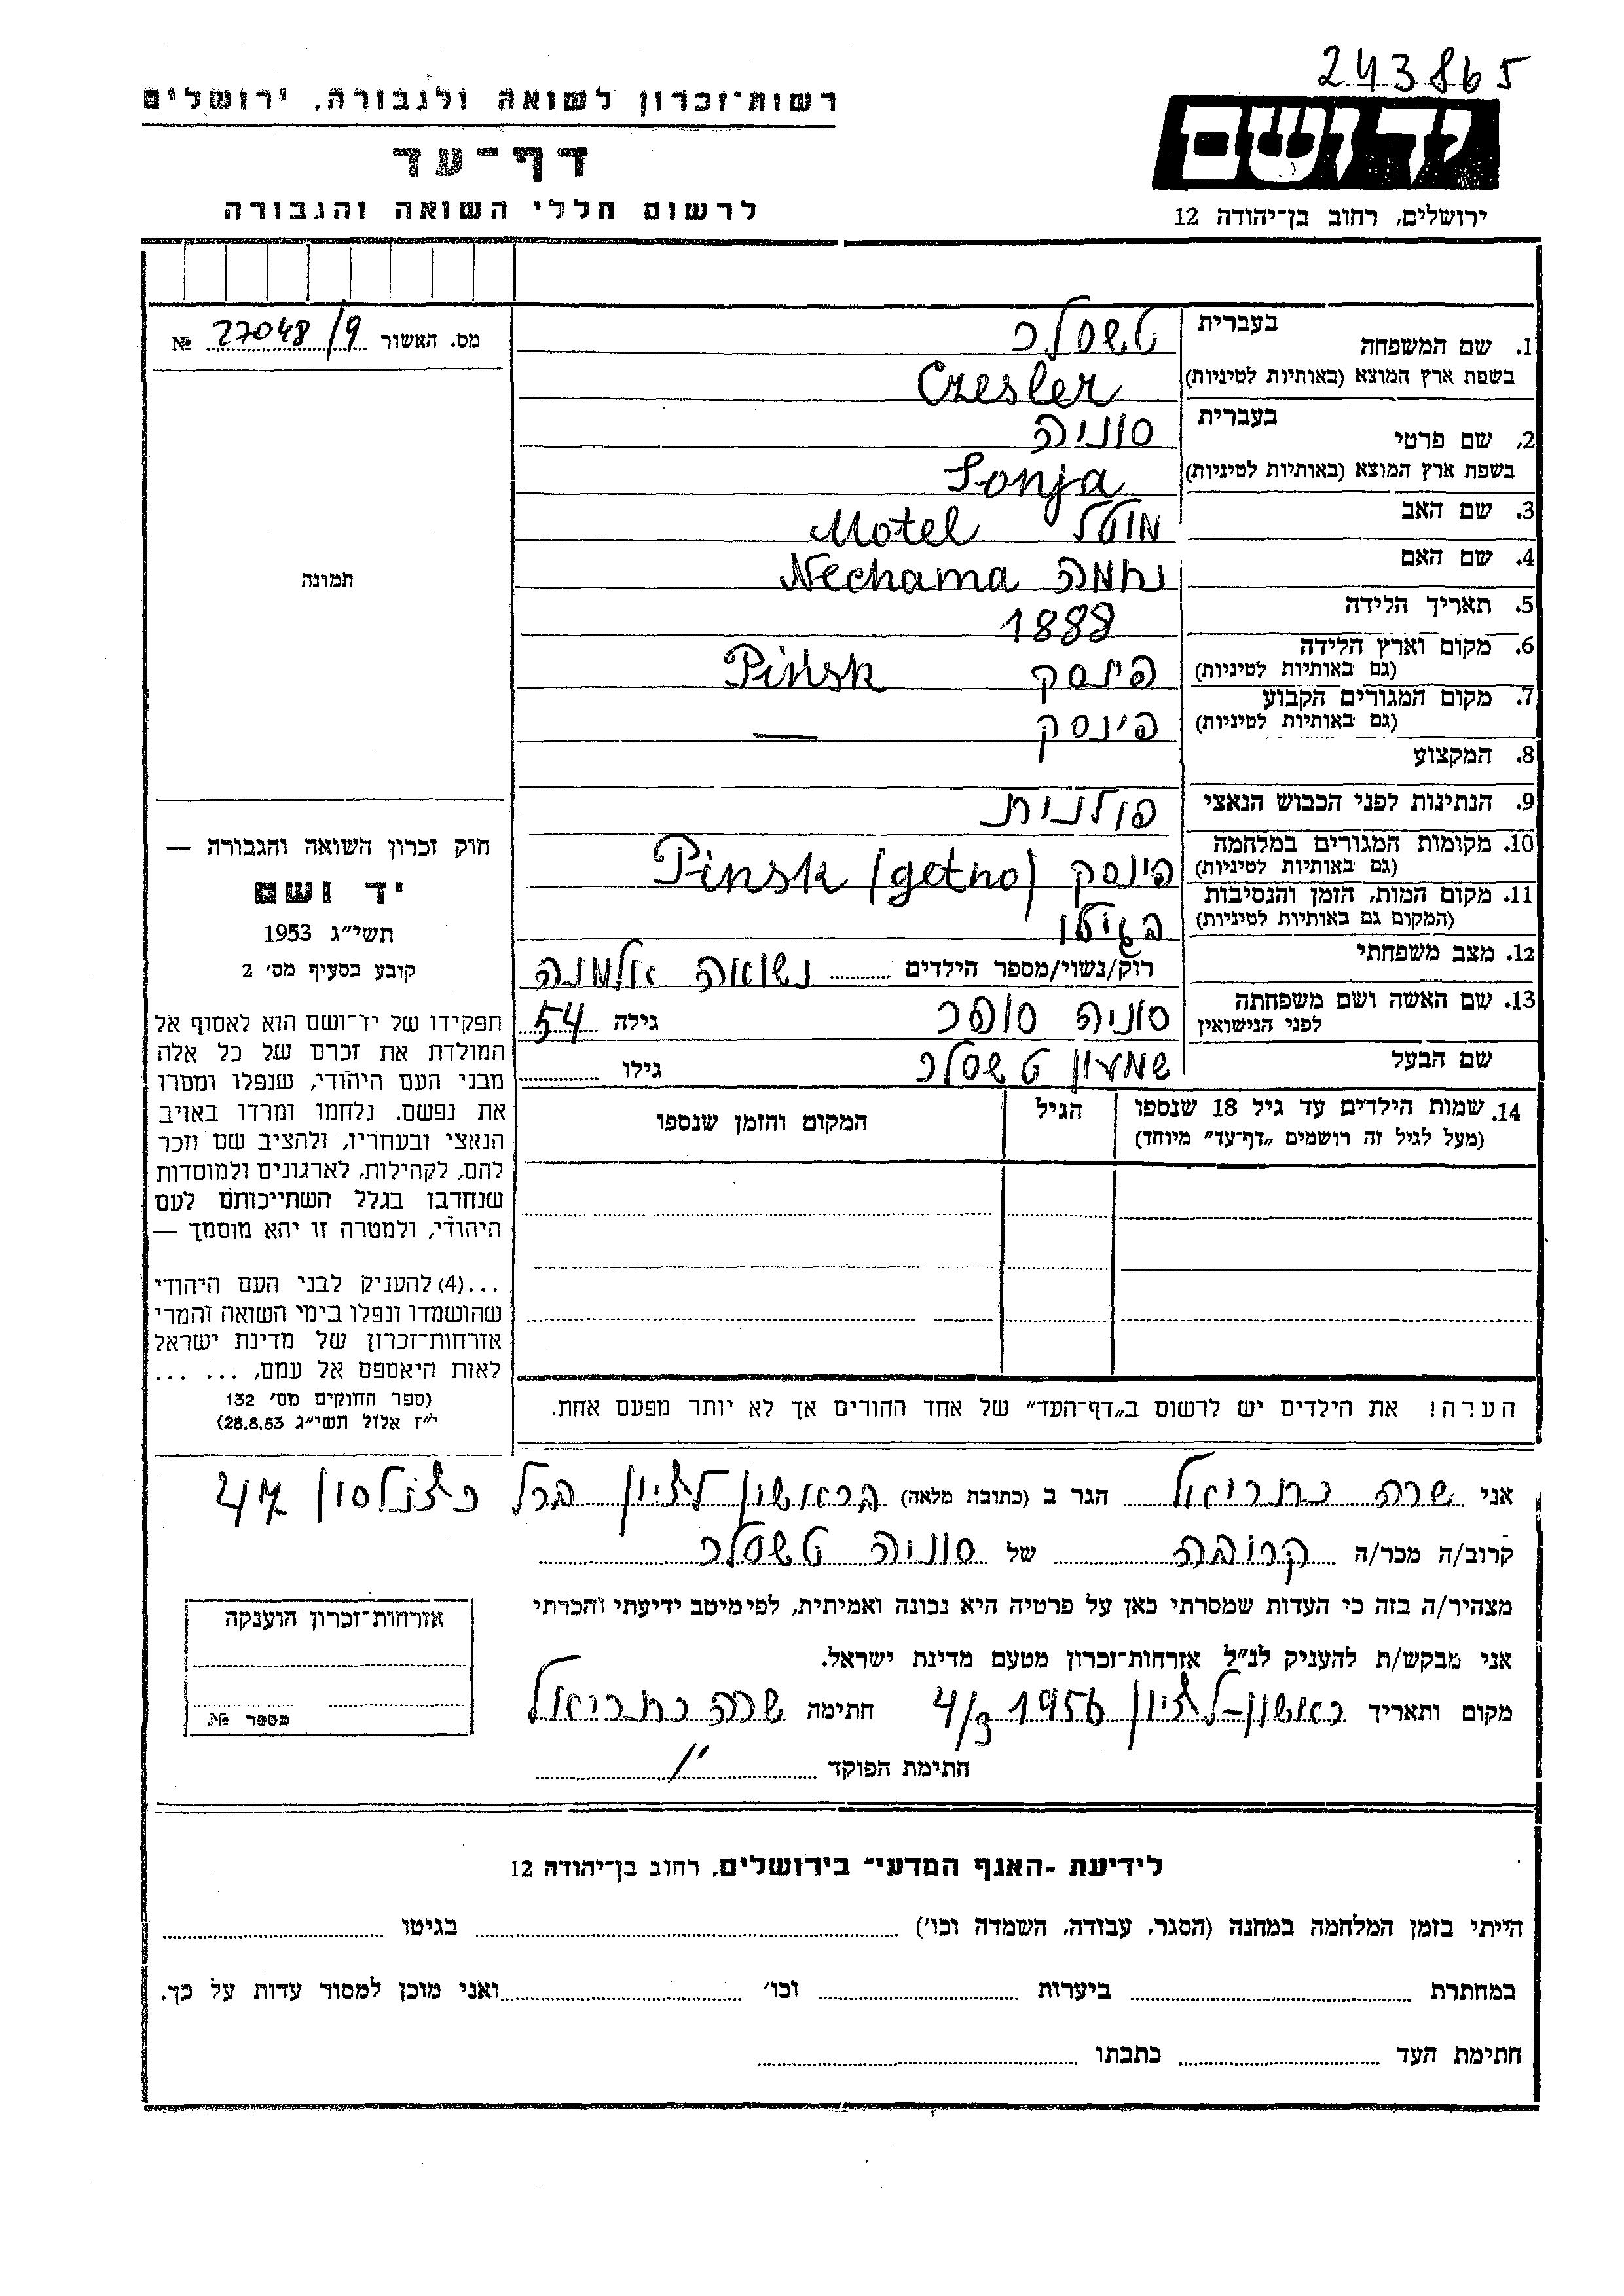 243865
רשות־זכרון לשואה ולגבורה, ירושלים
דף־עד
לרשום חללי השואה והגבורה
יד ושם
ירושלים, רחוב בן־יהודה 12
מס. האשור 27048/9 №
תמונה
חוק זכרון השואה והגבורה —
יד ושם
תשי״ג 1953
קובע בסעיף מס׳ 2
תפקידו של יד־ושם הוא לאסוף אל
המולדת את זכרם של כל אלה
מבני העם היהודי, שנפלו ומסרו
את נפשם. נלחמו ומרדו באויב
הנאצי ובעוזריו, ולהציב שם וזכר
להם, לקהילות, לארגונים ולמוסדות
שנחרבו בגלל השתייכותם לעם
היהודי, ולמטרה זו יהא מוסמך —
...(4) להעניק לבני העם היהודי
שהושמדו ונפלו בימי השואה והמרי
אזרחות־זכרון של מדינת ישראל
לאות היאספם אל עמם, ... ...
(ספר החוקים מס׳ 132
י״ז אלול תשי״ג 28.8.53)
1. שם המשפחה בעברית טשסלר
בשפת ארץ המוצא (באותיות לטיניות) Czesler
2. שם פרטי בעברית סוניה
בשפת ארץ המוצא (באותיות לטיניות) Sonja
3. שם האב מוטל Motel
4. שם האם נחמה Nechama
5. תאריך הלידה 1888
6. מקום וארץ הלידה פינסק Pińsk
(גם באותיות לטיניות)
7. מקום המגורים הקבוע פינסק —
(גם באותיות לטיניות)
8. המקצוע
9. הנתינות לפני הכבוש הנאצי פולנית
10. מקומות המגורים במלחמה
(גם באותיות לטיניות) פינסק Pinsk (getno)
11. מקום המות, הזמן והנסיבות
(המקום גם באותיות לטיניות) בגיטו
12. מצב משפחתי רוק/נשוי/מספר הילדים נשואה אלמנה
13. שם האשה ושם משפחתה סוניה סופר גילה 54
לפני הנישואין
שם הבעל שמעון טשסלר גילו
14. שמות הילדים עד גיל 18 שנספו הגיל המקום והזמן שנספו
(מעל לגיל זה רושמים „דף־עד״ מיוחד)
הערה! את הילדים יש לרשום ב„דף־העד״ של אחד ההורים אך לא יותר מפעם אחת.
אני שרה כתריאל הגר ב (כתובת מלאה) בראשון לציון ברל כצנלסון 47
קרוב/ה מכר/ה קרובה של סוניה טשסלר
מצהיר/ה בזה כי העדות שמסרתי כאן על פרטיה היא נכונה ואמיתית, לפי מיטב ידיעתי והכרתי
אני מבקש/ת להעניק לנ״ל אזרחות־זכרון מטעם מדינת ישראל.
מקום ותאריך ראשון־לציון 4/3 1956 חתימה שרה כתריאל
חתימת הפוקד
אזרחות־זכרון הוענקה
מספר №
לידיעת -האגף המדעי־ בירושלים, רחוב בן־יהודה 12
הייתי בזמן המלחמה במחנה (הסגר, עבודה, השמדה וכו׳) בגיטו
במחתרת ביערות וכו׳ ואני מוכן למסור עדות על כך.
חתימת העד כתבתו